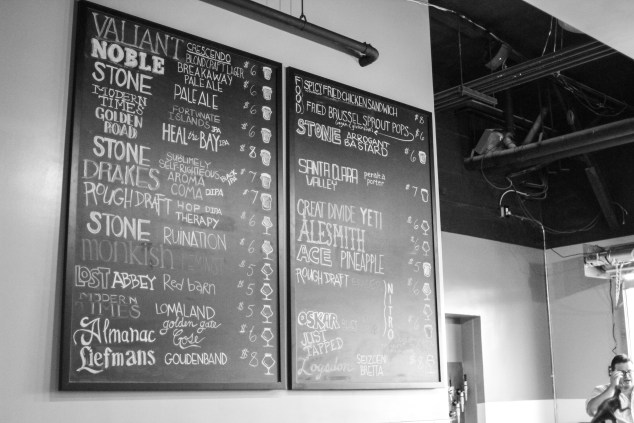 VALIANT CRESCENDO
BLOND CRAFT LAGER $6
NOBLE BREAKAWAY
PALE ALE $6
STONE PALE ALE $6
MODERN
TIMES FORTUNATE
ISLANDS IPA $6
GOLDEN
ROAD HEAL THE BAY IPA $6
STONE SUBLIMELY
SELF-RIGHTEOUS BLACK IPA $8
DRAKES AROMA
COMA DIPA $7
ROUGH DRAFT HOP DIPA
THERAPY $7
STONE RUINATION $6
monkish $5
LOST ABBEY Red barn $5
MODERN
TIMES LOMALAND $5
Almanac golden gate
Gose $6
Liefmans GOUDENBAND $8
FOOD
SPICY FRIED CHICKEN SANDWICH $8
FRIED BRUSSEL SPROUT POPS $6
STONE ARROGANT
BASTARD $6
SANTA CLARA
VALLEY porter $7
GREAT DIVIDE YETI $6
ALESMITH
ACE PINEAPPLE $5
ROUGH DRAFT
NITRO
OSKAR
JUST
TAPPED
Logsdon SEIZOEN
BRETTA